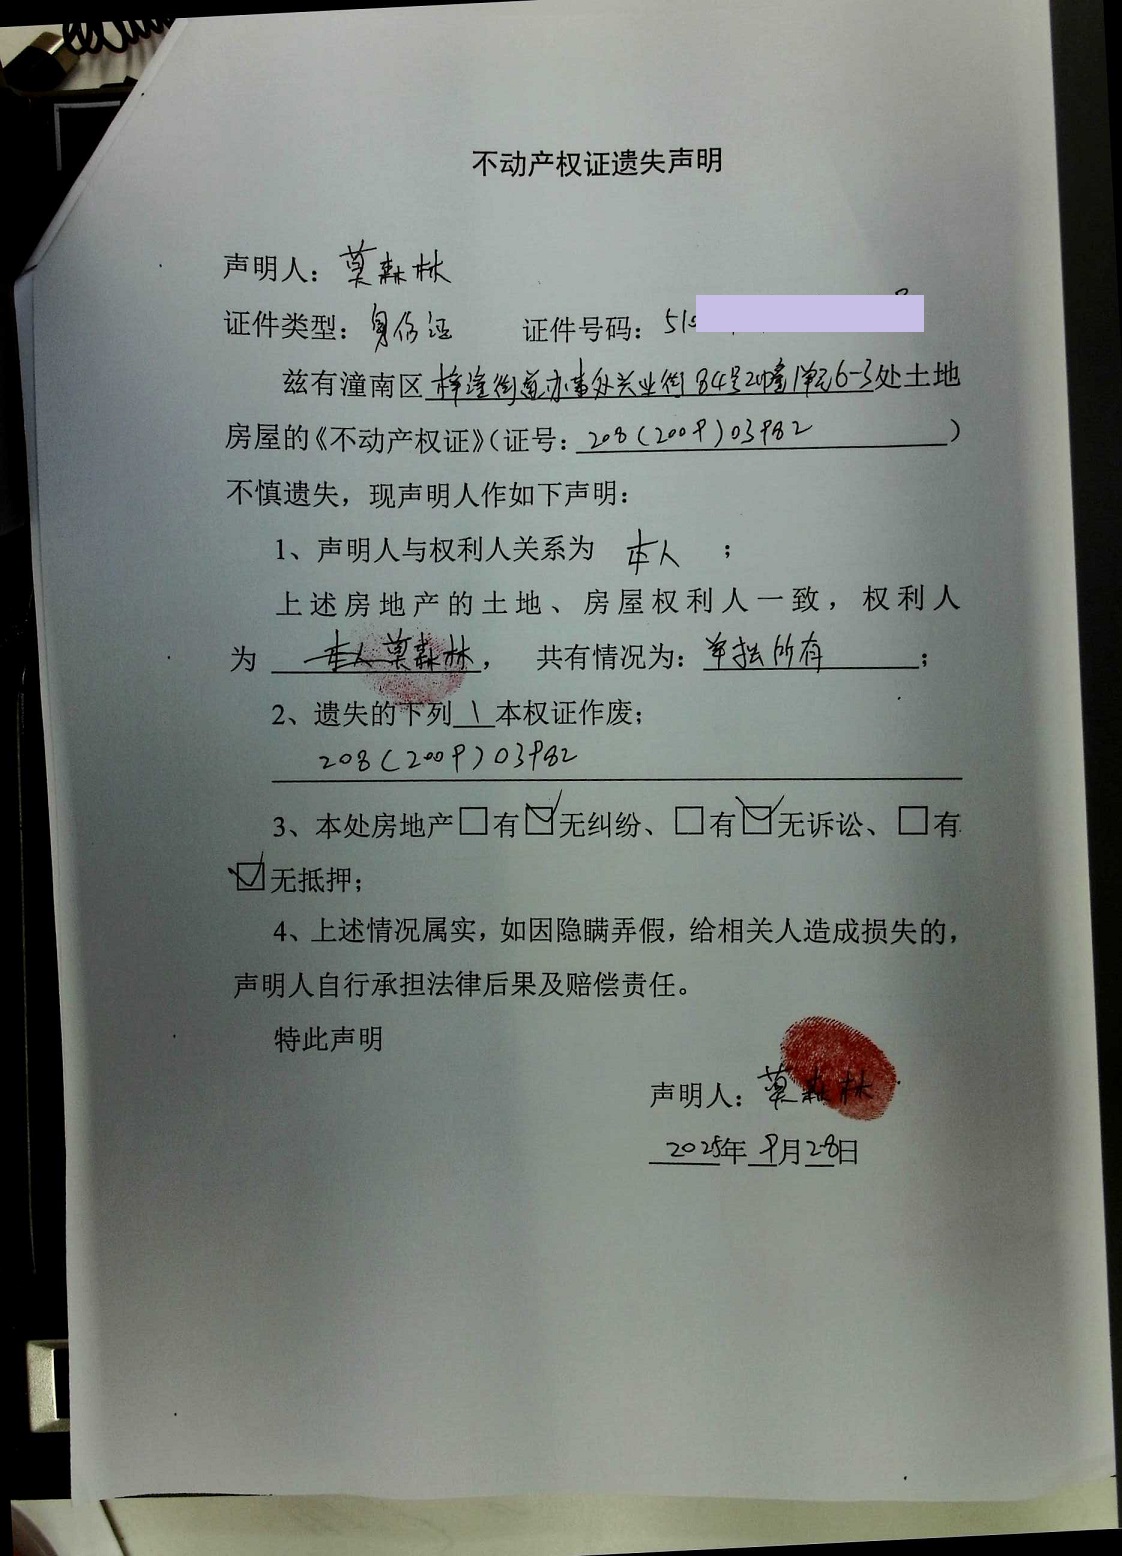 不动产权证遗失声明
声明人：莫森林
证件类型：身份证 证件号码：510
兹有潼南区梓潼街道办事处兴业街84号2幢1单元6-3处土地
房屋的《不动产权证》（证号：208(2009)03982）
不慎遗失，现声明人作如下声明：
1、声明人与权利人关系为 本人 ；
上述房地产的土地、房屋权利人一致，权利人
为 本人 莫森林， 共有情况为：单独所有；
2、遗失的下列1本权证作废；
208(2009)03982
3、本处房地产□有☑无纠纷、□有☑无诉讼、□有
☑无抵押；
4、上述情况属实，如因隐瞒弄假，给相关人造成损失的，
声明人自行承担法律后果及赔偿责任。
特此声明
声明人：莫森林
2025年9月28日